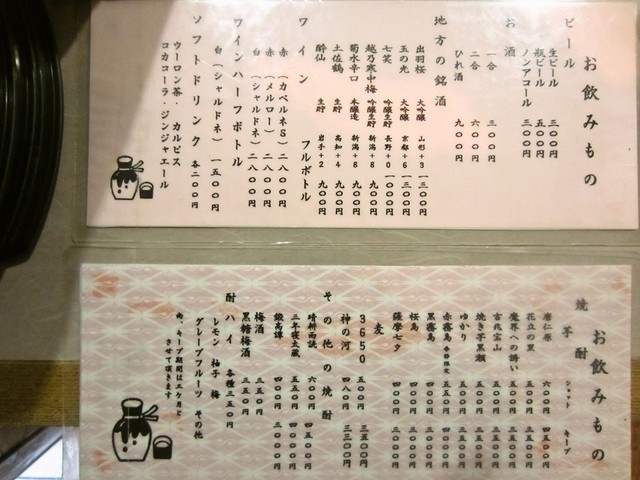 お飲みもの
ビール
生ビール 五〇〇円
瓶ビール 五〇〇円
ノンアコール 三〇〇円
お酒
一合 三〇〇円
二合 六〇〇円
ひれ酒 九〇〇円
地方の銘酒
出羽桜 大吟醸 山形+3 一三〇〇円
玉の光 大吟醸 京都+6 一三〇〇円
七笑 吟醸生貯 長野+0 一〇〇〇円
越乃寒中梅 吟醸生貯 新潟+8 九〇〇円
菊水辛口 本醸造 新潟+8 九〇〇円
土佐鶴 生貯 高知+4 九〇〇円
酔仙 生貯 岩手+2 九〇〇円
ワイン フルボトル
赤(カベルネS) 二八〇〇円
赤(メルロー) 二八〇〇円
白(シャルドネ) 二八〇〇円
ワインハーフボトル
白(シャルドネ) 一五〇〇円
ソフトドリンク 各二〇〇円
ウーロン茶・カルピス
コカコーラ・ジンジャエール
お飲みもの
焼芋酎 ショット キープ
唐仁原 六〇〇円 四五〇〇円
花立の里 五〇〇円
魔界への誘い 五〇〇円
吉兆宝山 五〇〇円
焼き芋黒瀬 五〇〇円
ゆかり
赤霧島 五五〇円
黒霧島 四〇〇円 三〇〇〇円
桜島 四〇〇円 三〇〇〇円
薩摩七夕 四〇〇円 三〇〇〇円
麦
3650 五〇〇円 三五〇〇円
神の河 四八〇円 三三〇〇円
その他の焼酎
晴耕雨読 六〇〇円 四五〇〇円
三年寝太蔵 五五〇円 四〇〇〇円
鍛高譚 四〇〇円 三〇〇〇円
梅酒 三五〇円
黒糖梅酒 三五〇円
酎ハイ 各種三五〇円
レモン 柚子 梅
グレープフルーツ その他
尚、キープ期間は三ケ月と
させて頂きます